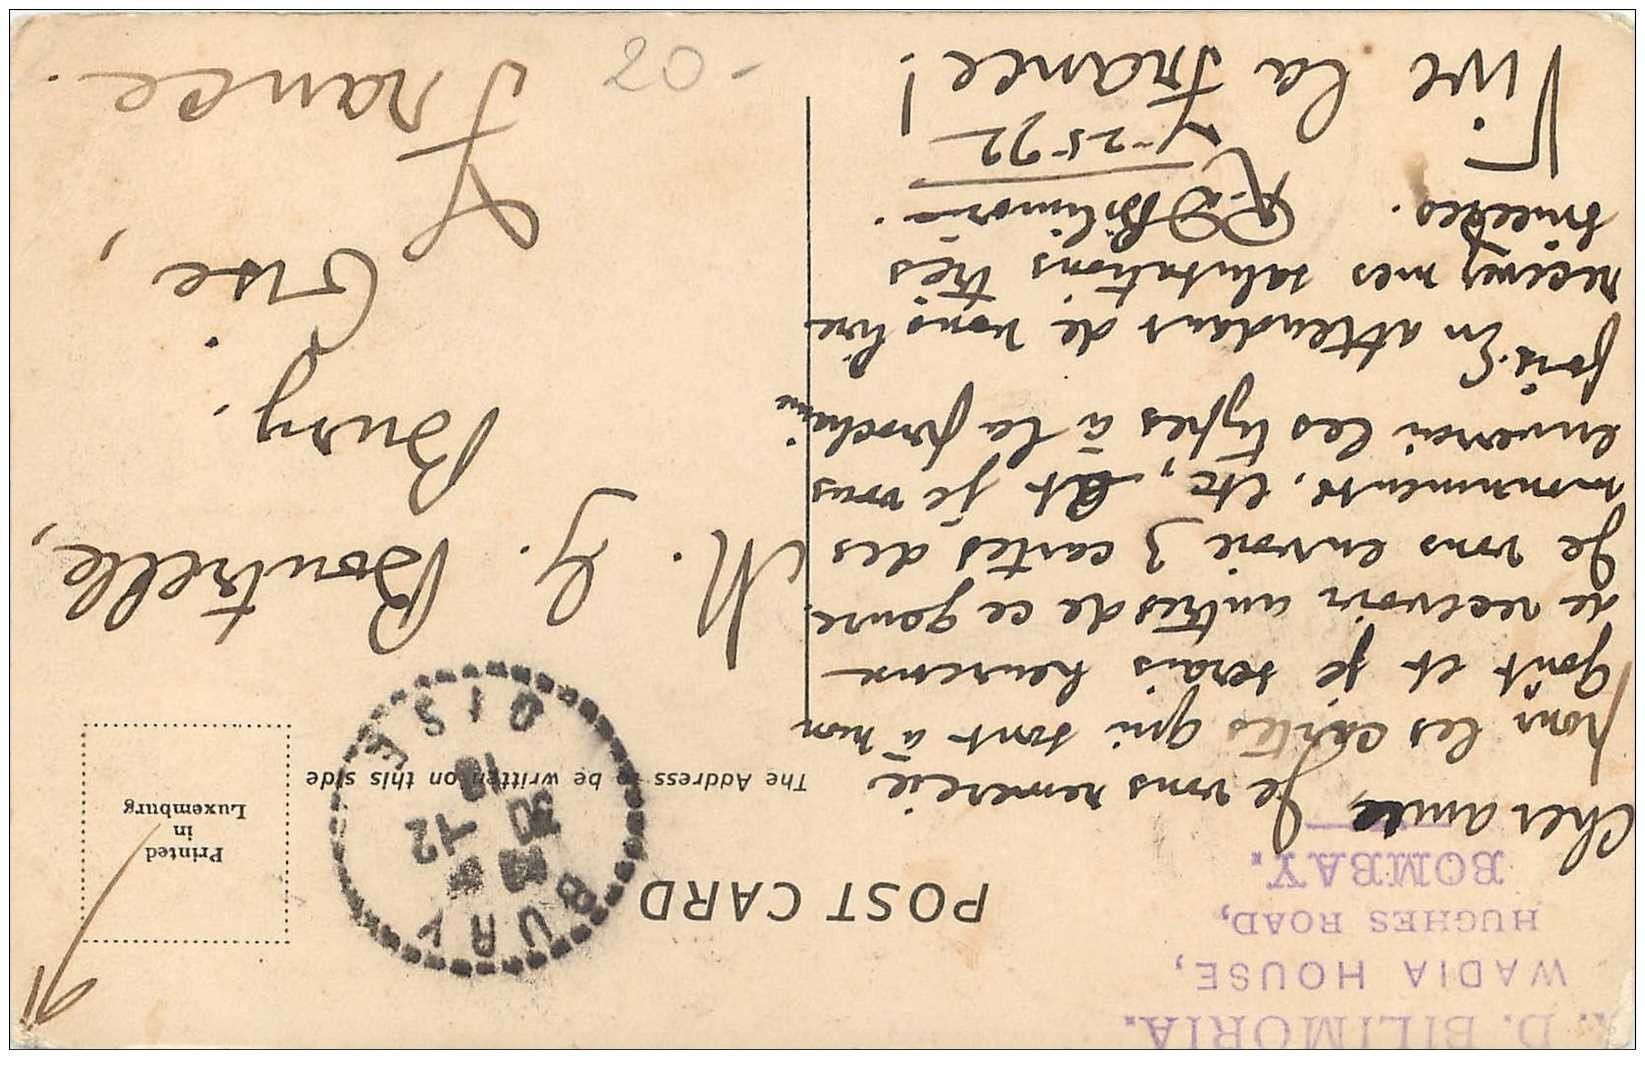 R. D. BILIMORIA.
WADIA HOUSE,
HUGHES ROAD,
BOMBAY.
POST CARD
The Address to be written on this side
Printed
in
Luxemburg
BURY
OISE
12
Cher amie, Je vous remercie
pour les cartes qui sont à mon
goût et je serais heureux
de recevoir autres de ce genre.
Je vous envoie 3 cartes des
monuments, etc, et je vous
enverrai les types à la prochaine
fois. En attendant de vous lire
recevez mes salutations très
sincères. R. D. Bilimoria.
Vive la France!
M. G. Boutrelle,
Bury.
Oise,
France.
-08